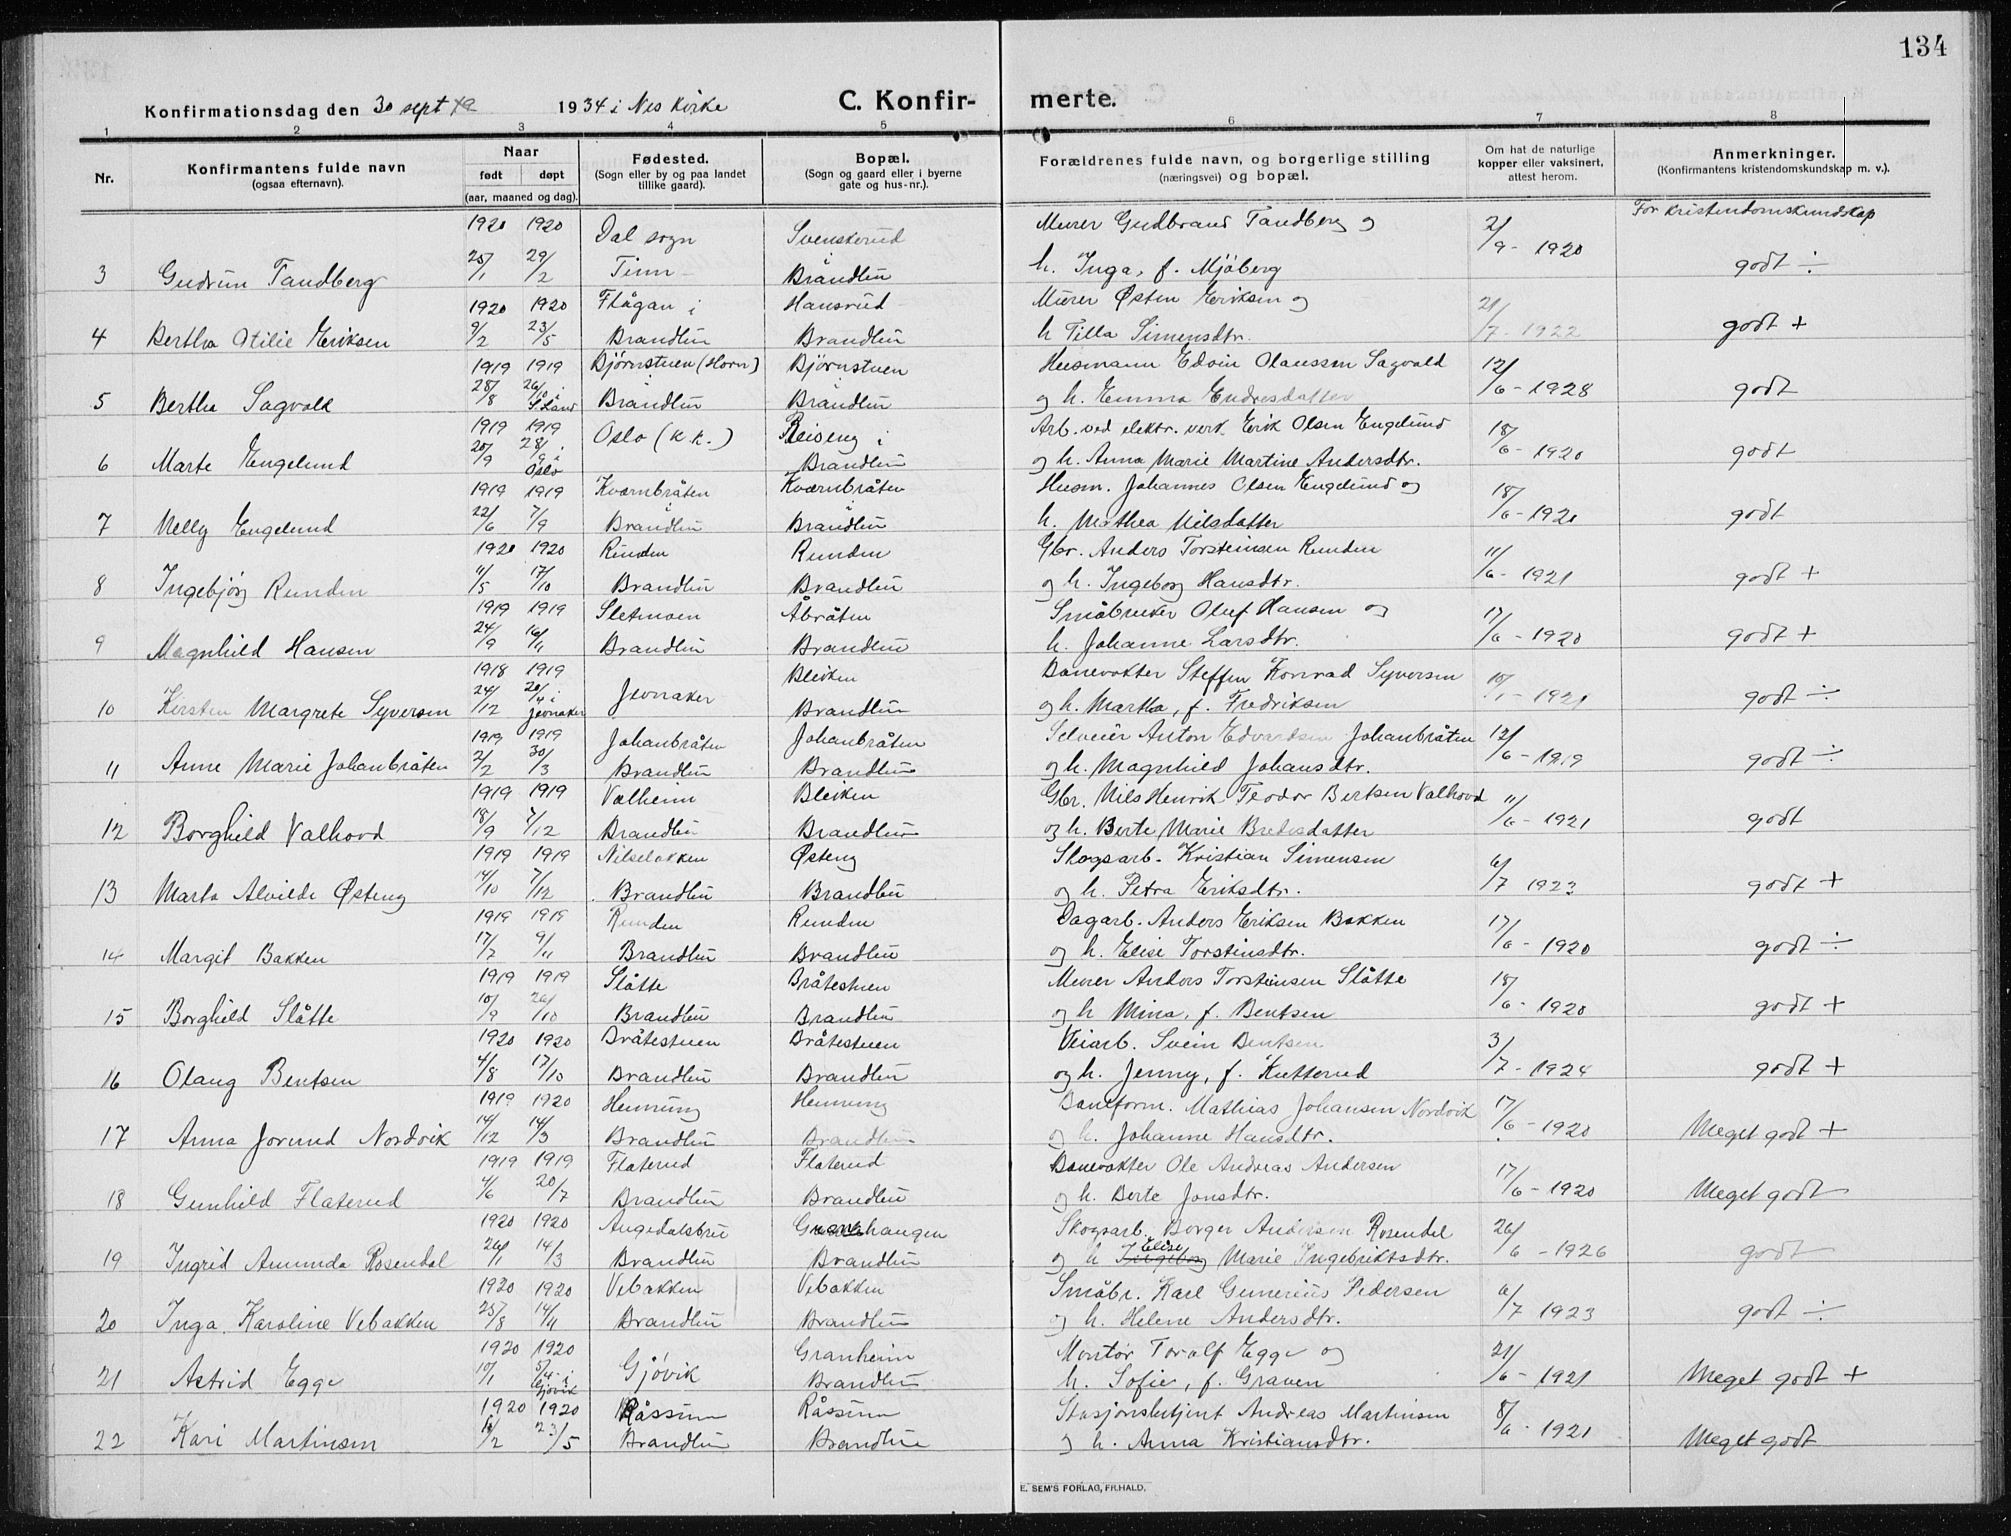 134
Konfirmationsdag den 30 sept 1934 i Nes Kirke C. Konfir- merte.
1 2 3 4 5 6 7 8
Nr. Konfirmantens fulde navn (ogsaa efternavn). Naar født døpt (aar, maaned og dag). Fødested. (Sogn eller by og paa landet tillike gaard). Bopæl. (Sogn og gaard eller i byerne gate og hus-nr.). Forældrenes fulde navn, og borgerlige stilling (næringsvei) og bopæl. Om hat de naturlige kopper eller vaksinert, attest herom. Anmerkninger. (Konfirmantens kristendomskundskap m. v.).
1920 1920 Dal sogn Svenskerud Murer Gudbrand Tandberg og 2/9 - 1920 For kristendomskundskap
3 Gudrun Tandberg 25/1 29/2 Tinn Brandbu h. Inga, f. Mjöberg godt ÷
1920 1920 Flågan i Hansrud Murer Østen Eriksen og 21/7 - 1922
4 Bertha Otilie Eriksen 9/2 23/5 Brandbu Brandbu h Tilla Simensdtr. godt +
1919 1919 Bjørnstuen (Horn) Bjørnstuen Husmann Edvin Olaussen Sagvold 12/6 - 1928
5 Bertha Sagvold 28/8 26/10 i S. Land Brandbu Brandbu og h. Emma Endresdatter godt
1919 1919 Oslo (k.k.) Reiseng i Arb. ved elektr. verk Erik Olsen Engelund 18/6 - 1920
6 Marte Engelund 20/9 28/9 i Oslo Brandbu og h. Anna Marie Martine Andersdtr. godt
1919 1919 Kværnbråten Kværnbråten Husm. Johannes Olsen Engelund og 18/6 - 1920
7 Nelly Engelund 22/6 7/9 Brandbu Brandbu h. Mathea Nilsdatter godt
1920 1920 Runden Runden Gbr. Anders Torsteinsen Runden 11/6 - 1921
8 Ingebjörg Runden 11/5 17/10 Brandbu Brandbu og h. Ingeborg Hansdtr. godt +
1919 1919 Sletmoen Åbråten Småbruker Oluf Hansen og 17/6 - 1920
9 Magnhild Hansen 24/9 16/11 Brandbu Brandbu h. Johanne Larsdtr. godt +
1918 1919 Jevnaker Bleiken Banevokter Steffen Konrad Syversen 10/1 - 1921
10 Kirsten Margrete Syversen 24/12 20/4 i Jevnaker Brandbu og h. Martha, f. Fredriksen godt ÷
1919 1919 Johanbråten Johanbråten Selveier Anton Edvardsen Johanbråten 12/6 - 1919
11 Anne Marie Johanbråten 2/2 30/3 Brandbu Brandbu og h. Magnhild Johansdtr. godt ÷
1919 1919 Valheim Bleiken Gbr. Nils Henrik Teodor Bertsen Valhovd 11/6 - 1921
12 Borghild Valhovd 18/9 7/12 Brandbu Brandbu og h. Berte Marie Bredesdatter godt
1919 1919 Nilselokken Østeng Skogsarb. Kristian Simensen 6/7 1923
13 Marta Alvilde Østeng 14/10 7/12 Brandbu Brandbu og h. Petra Eriksdtr. godt +
1919 1919 Runden Runden Dagarb. Anders Eriksen Bakken 17/6 - 1920
14 Margit Bakken 17/7 9/11 Brandbu Brandbu og h. Elise Torstinsdtr. godt ÷
1919 1919 Slåtte Bråtestuen Murer Anders Torsteinsen Slåtte 18/6 - 1920
15 Borghild Slåtte 10/9 26/10 Brandbu Brandbu og h Mina, f. Bentsen godt +
1920 1920 Bråtestuen Bråtestuen Veiarb. Svein Bentsen 3/7 - 1924
16 Olaug Bentsen 4/8 17/10 Brandbu Brandbu og h. Jenny, f. Kutterud godt +
1919 1920 Hennung Hennung Baneform. Mathias Johansen Nordvik 17/6 - 1920
17 Anna Jorund Nordvik 14/12 14/3 Brandbu Brandbu og h. Johanne Hansdtr. Meget godt +
1919 1919 Flaterud Flaterud Banevokter Ole Andreas Andersen 17/6 - 1920
18 Gunhild Flaterud 4/6 20/7 Brandbu Brandbu og h. Berte Jonsdtr. Meget godt
1920 1920 Augedalsbru Granshaugen Skogsarb. Borger Andersen Rosendal 26/6 - 1926
19 Ingrid Amunda Rosendal 26/1 14/3 Brandbu Brandbu og h Ingeborg Elise Marie Ingebriktsdtr. godt
1920 1920 Vebakken Vebakken Småbr. Karl Gunerius Pedersen 6/7 1923
20 Inga Karoline Vebakken 25/8 14/11 Brandbu Brandbu og h. Helene Andersdtr. godt ÷
1920 1920 Gjövik Granheim Montør Toralf Egge og 21/6 - 1921
21 Astrid Egge 10/1 5/4 i Gjövik Brandbu h. Sofie, f. Graven Meget godt +
1920 1920 Råssum Råssum Stasjonsbetjent Andreas Martinsen 8/6 - 1921
22 Kari Martinsen /2 23/5 Brandbu Brandbu og h. Anna Kristiansdtr. Meget godt
E. SEM'S FORLAG, FR.HALD.